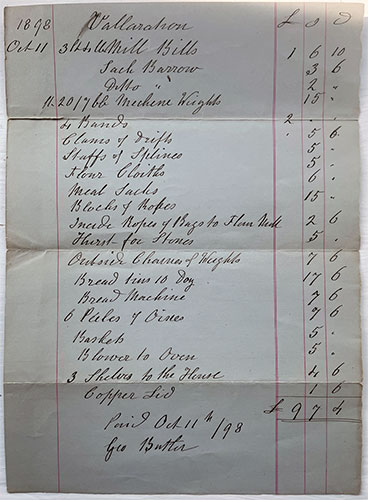 1898 Vallaration £ s d
Oct 11 3 Mill Bills 1 6 10
Sack Barrow 3 6
Ditto " 2 "
11. 20/7 66 Mechene Wights 15 "
4 Bands 2 . .
Clams of Drifts 5 6
Staffs of Splines 5 .
Flour Cloiths 6 .
Meal Sacks
Blocks of Ropes 15 .
Inside Ropes of Bags to Flour Mill 2 6
Hurst for Stones 5 .
Outside Chaines of Wights 7 6
Bread tins 10 Doz 17 6
Bread Machine 7 6
6 Peeles of Oines 7 6
Baskets 5 .
Blower to Oven 5 .
3 Shelves to the House 4 6
Copper Lid 1 6
£ 9 7 4
Paid Oct 11th/98
Geo Butler